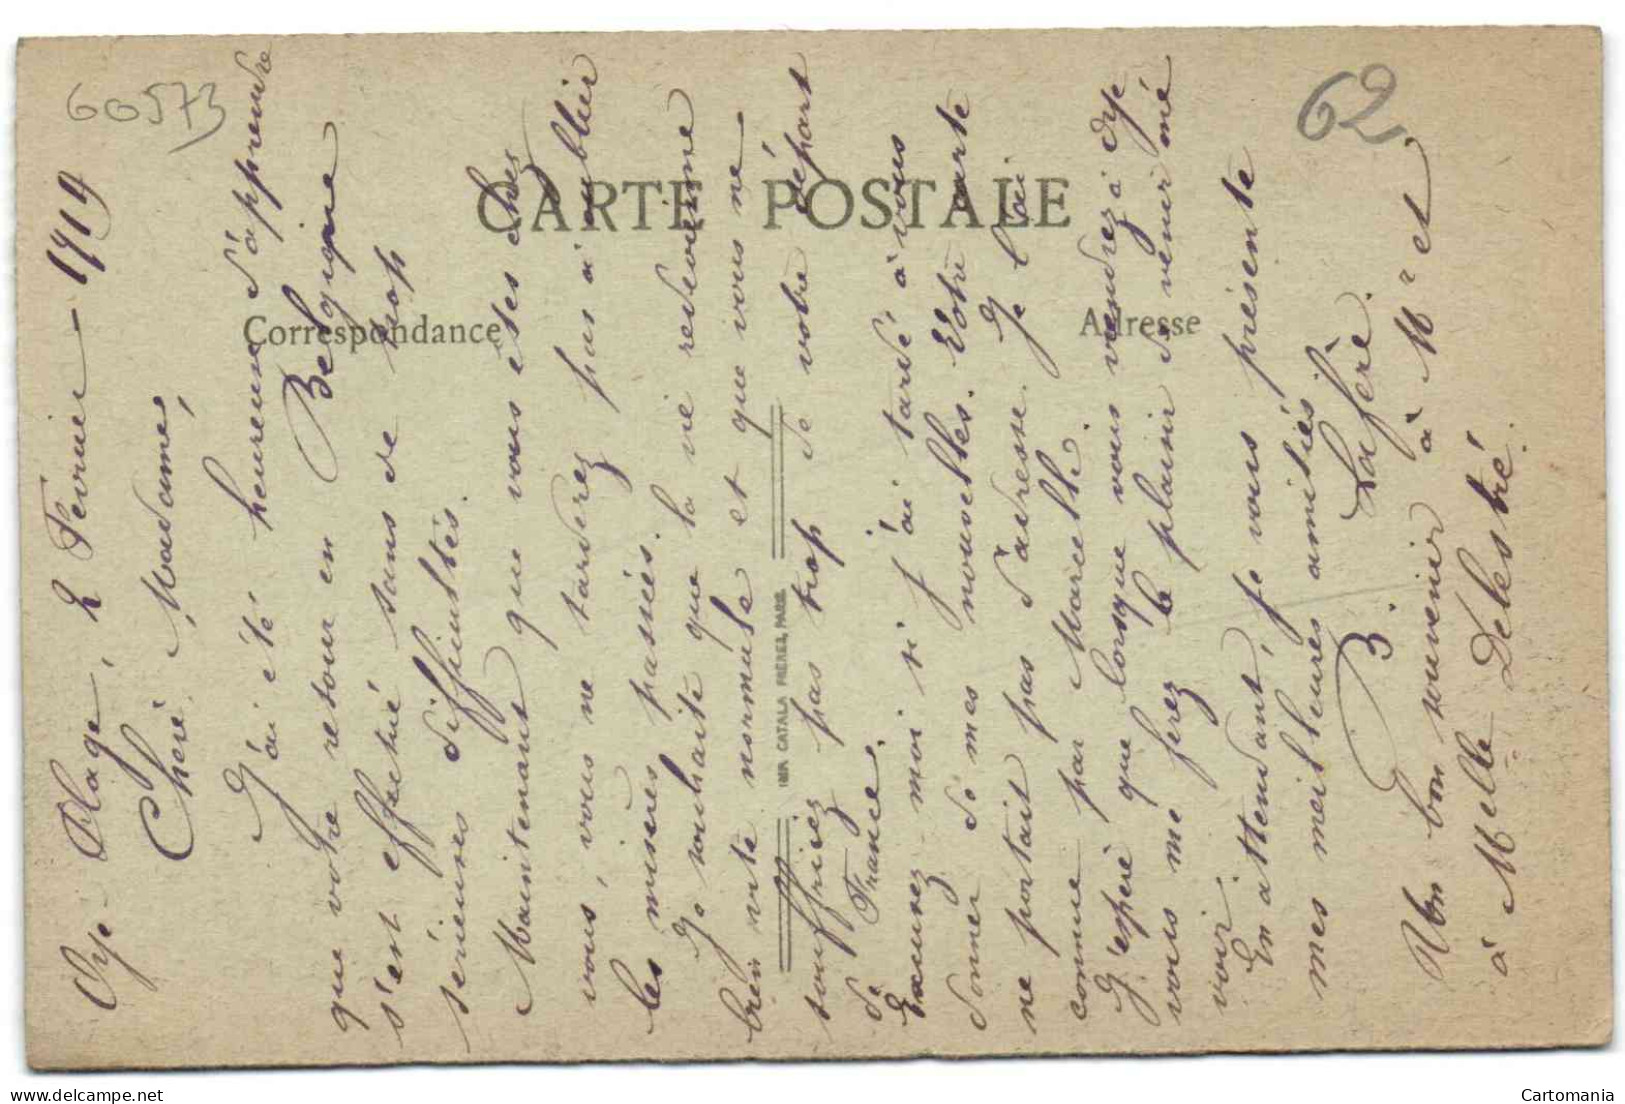 60573
62
CARTE POSTALE
Correspondance
Adresse
IMP. CATALA FRÈRES, PARIS
Oye-Plage, 2 Fevrier - 1919
Cherè Madamé,
J'ai été heureuse d'apprendre
que votre retour en Belgique
s'est effectué sans de trop
serieuses difficultés.
Maintenant que vous êtes chez
vous, vous ne tarderez pas à oublier
les miseres passées.
Je souhaite que la vie redevienne
bien vite normale et que vous ne
souffriez pas trop de votre départ
de France.
Excusez-moi si j'ai tardé à vous
donner de mes nouvelles. Votre carte
ne portait pas d'adresse. Je l'ai
connue par Marcelle.
J'esperè que lorsque vous viendrez à Oye
vous me ferez le plaisir de venir mé
voir.
En attendant, je vous présente
mes meilleures amitiés
B. Lafère.
Un bon souvenir à Mr et
à Melle Delestré.
Cartomania